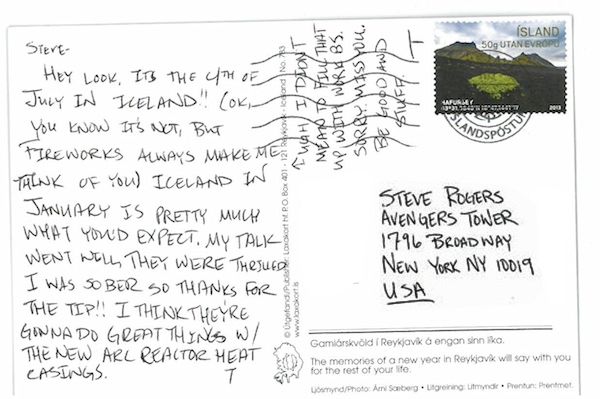 STEVE-
HEY LOOK, ITS THE 4TH OF
JULY IN ICELAND!! (OK,
YOU KNOW IT'S NOT, BUT
FIREWORKS ALWAYS MAKE ME
THINK OF YOU) ICELAND IN
JANUARY IS PRETTY MUCH
WHAT YOU'D EXPECT. MY TALK
WENT WELL, THEY WERE THRILLED
I WAS SOBER SO THANKS FOR
THE TIP!! I THINK THEY'RE
GONNA DO GREAT THINGS W/
THE NEW ARC REACTOR HEAT
CASINGS.
T
↑ UGH I DIDN'T
MEAN TO FILL THAT
UP WITH WORK BS.
SORRY. MISS YOU.
BE GOOD AND
STUFF.
T
© Útgefandi/Publisher: Laxakort hf. P.O. Box 401 - 121 Reykjavík - Iceland | No. 763
www.laxakort.is
ÍSLAND
50g UTAN EVRÓPU
HAFURSEY
2013
ÍSLANDSPÓSTUR
STEVE ROGERS
AVENGERS TOWER
1796 BROADWAY
NEW YORK NY 10019
USA
Gamlárskvöld í Reykjavík á engan sinn líka.
The memories of a new year in Reykjavík will say with you
for the rest of your life.
Ljósmynd/Photo: Árni Sæberg • Litgreining: Litmyndir • Prentun: Prentmet.